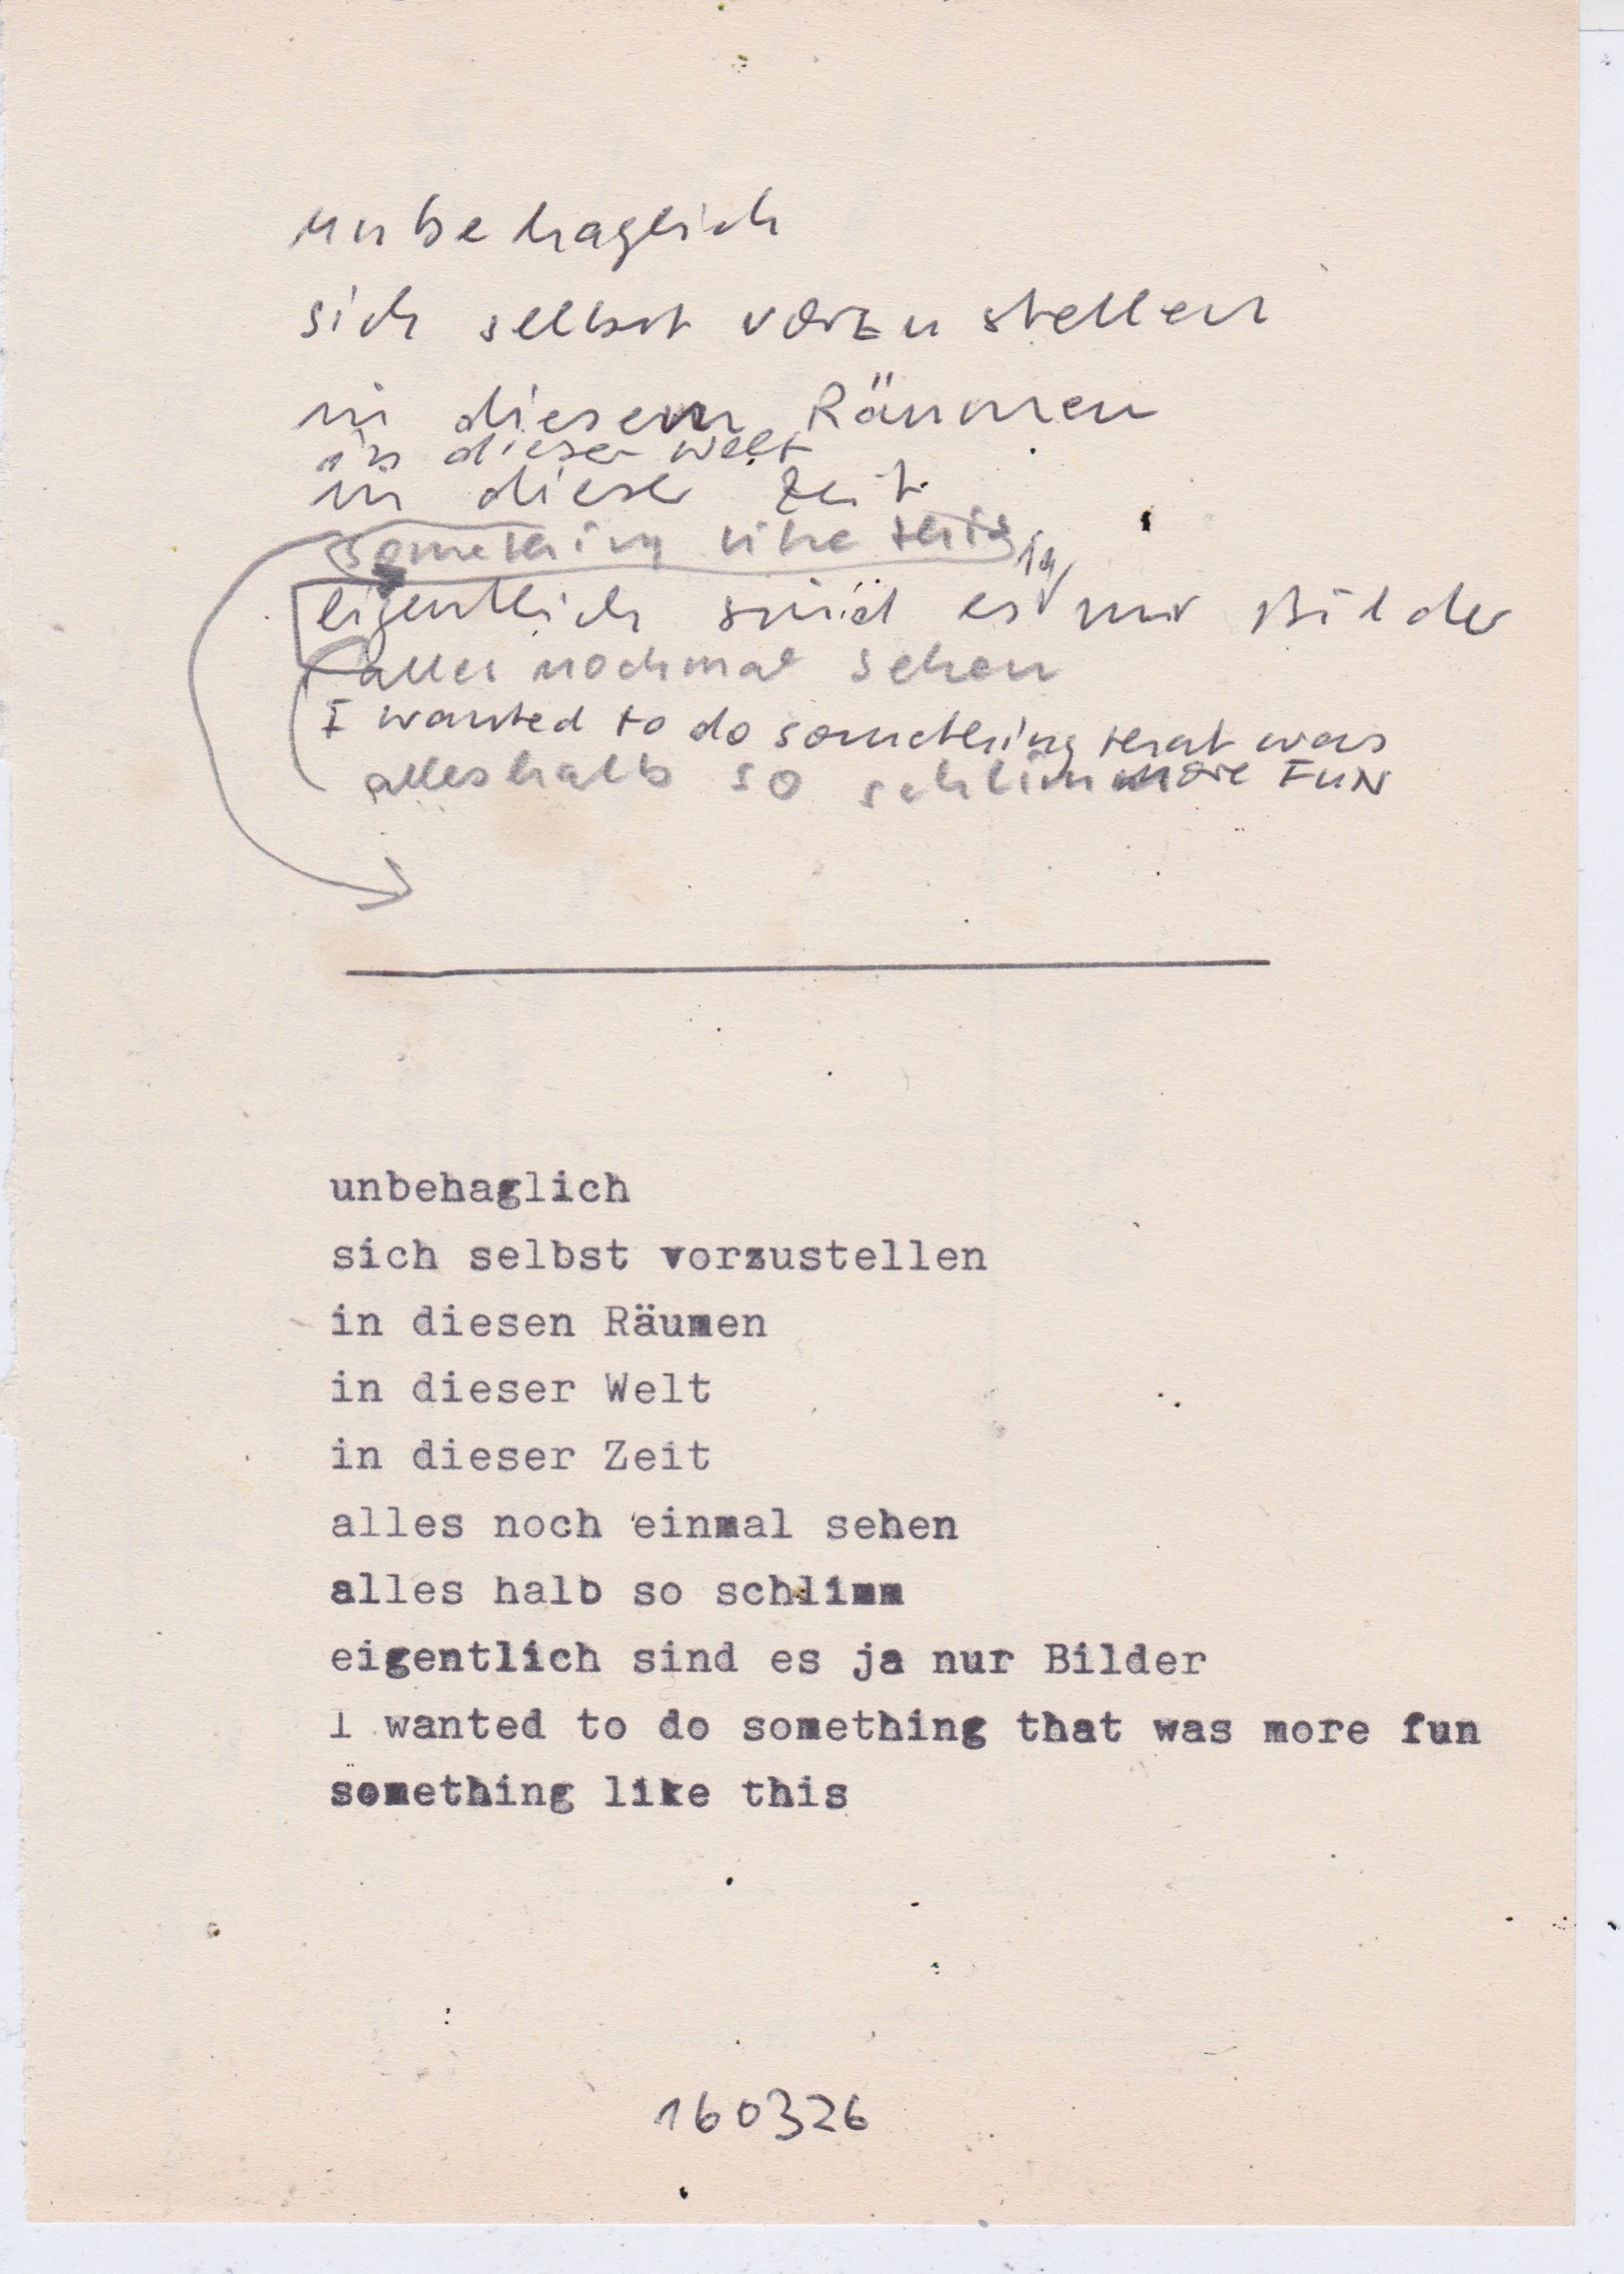 unbehaglich
sich selbst vorzustellen
in diesem Räumen
in dieser Welt
in dieser Zeit
something like this
eigentlich sind es ja nur Bilder
alles nochmal sehen
I wanted to do something that was
alles halb so schlimm more FUN
unbehaglich
sich selbst vorzustellen
in diesen Räumen
in dieser Welt
in dieser Zeit
alles noch einmal sehen
alles halb so schlimm
eigentlich sind es ja nur Bilder
I wanted to do something that was more fun
something like this
160326